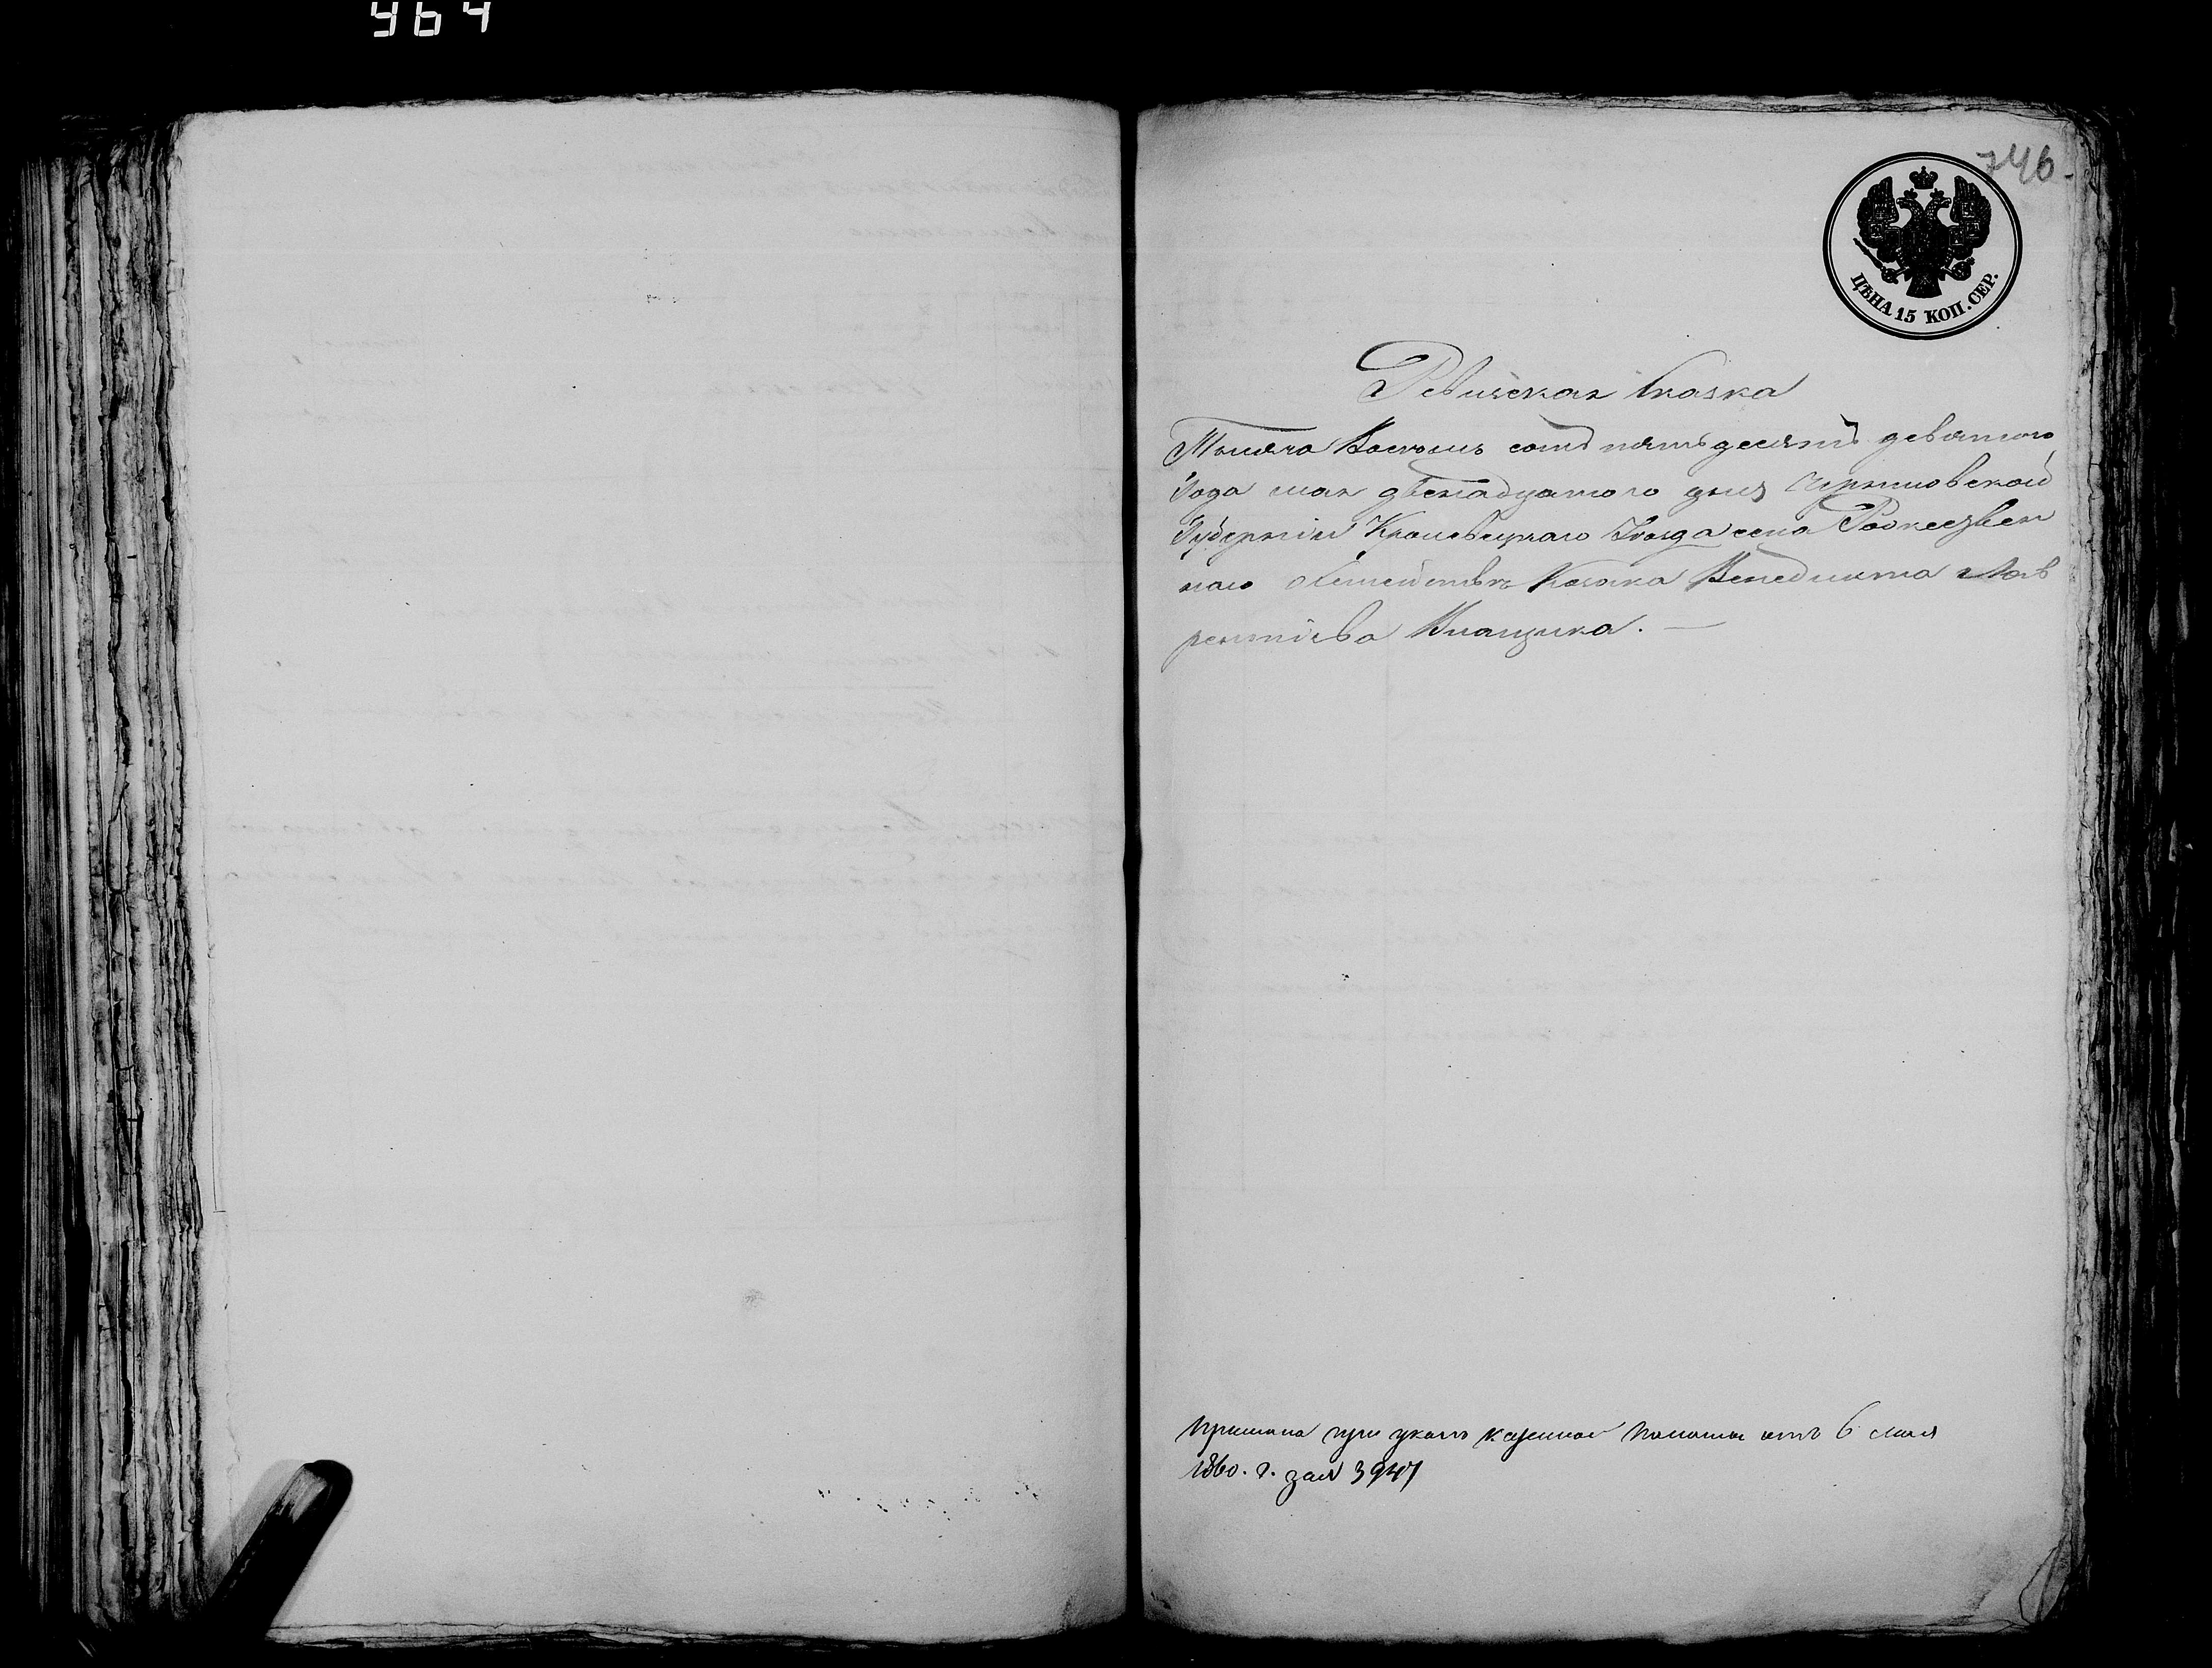 964
746.
ЦѢНА 15 КОП. СЕР.
Ревизская Сказка
Тысяча Восемь сотъ пятьдесятъ девятого
Года мая двенадцатого дня Черниговской
Губерніи Кролевецкаго Уезда села Рожествен
наго о семействе Козака Венедикта Лав
рентіева Клащука. —
Прислана при указе казенной палаты отъ 6 мая
1860. г. за № 3947